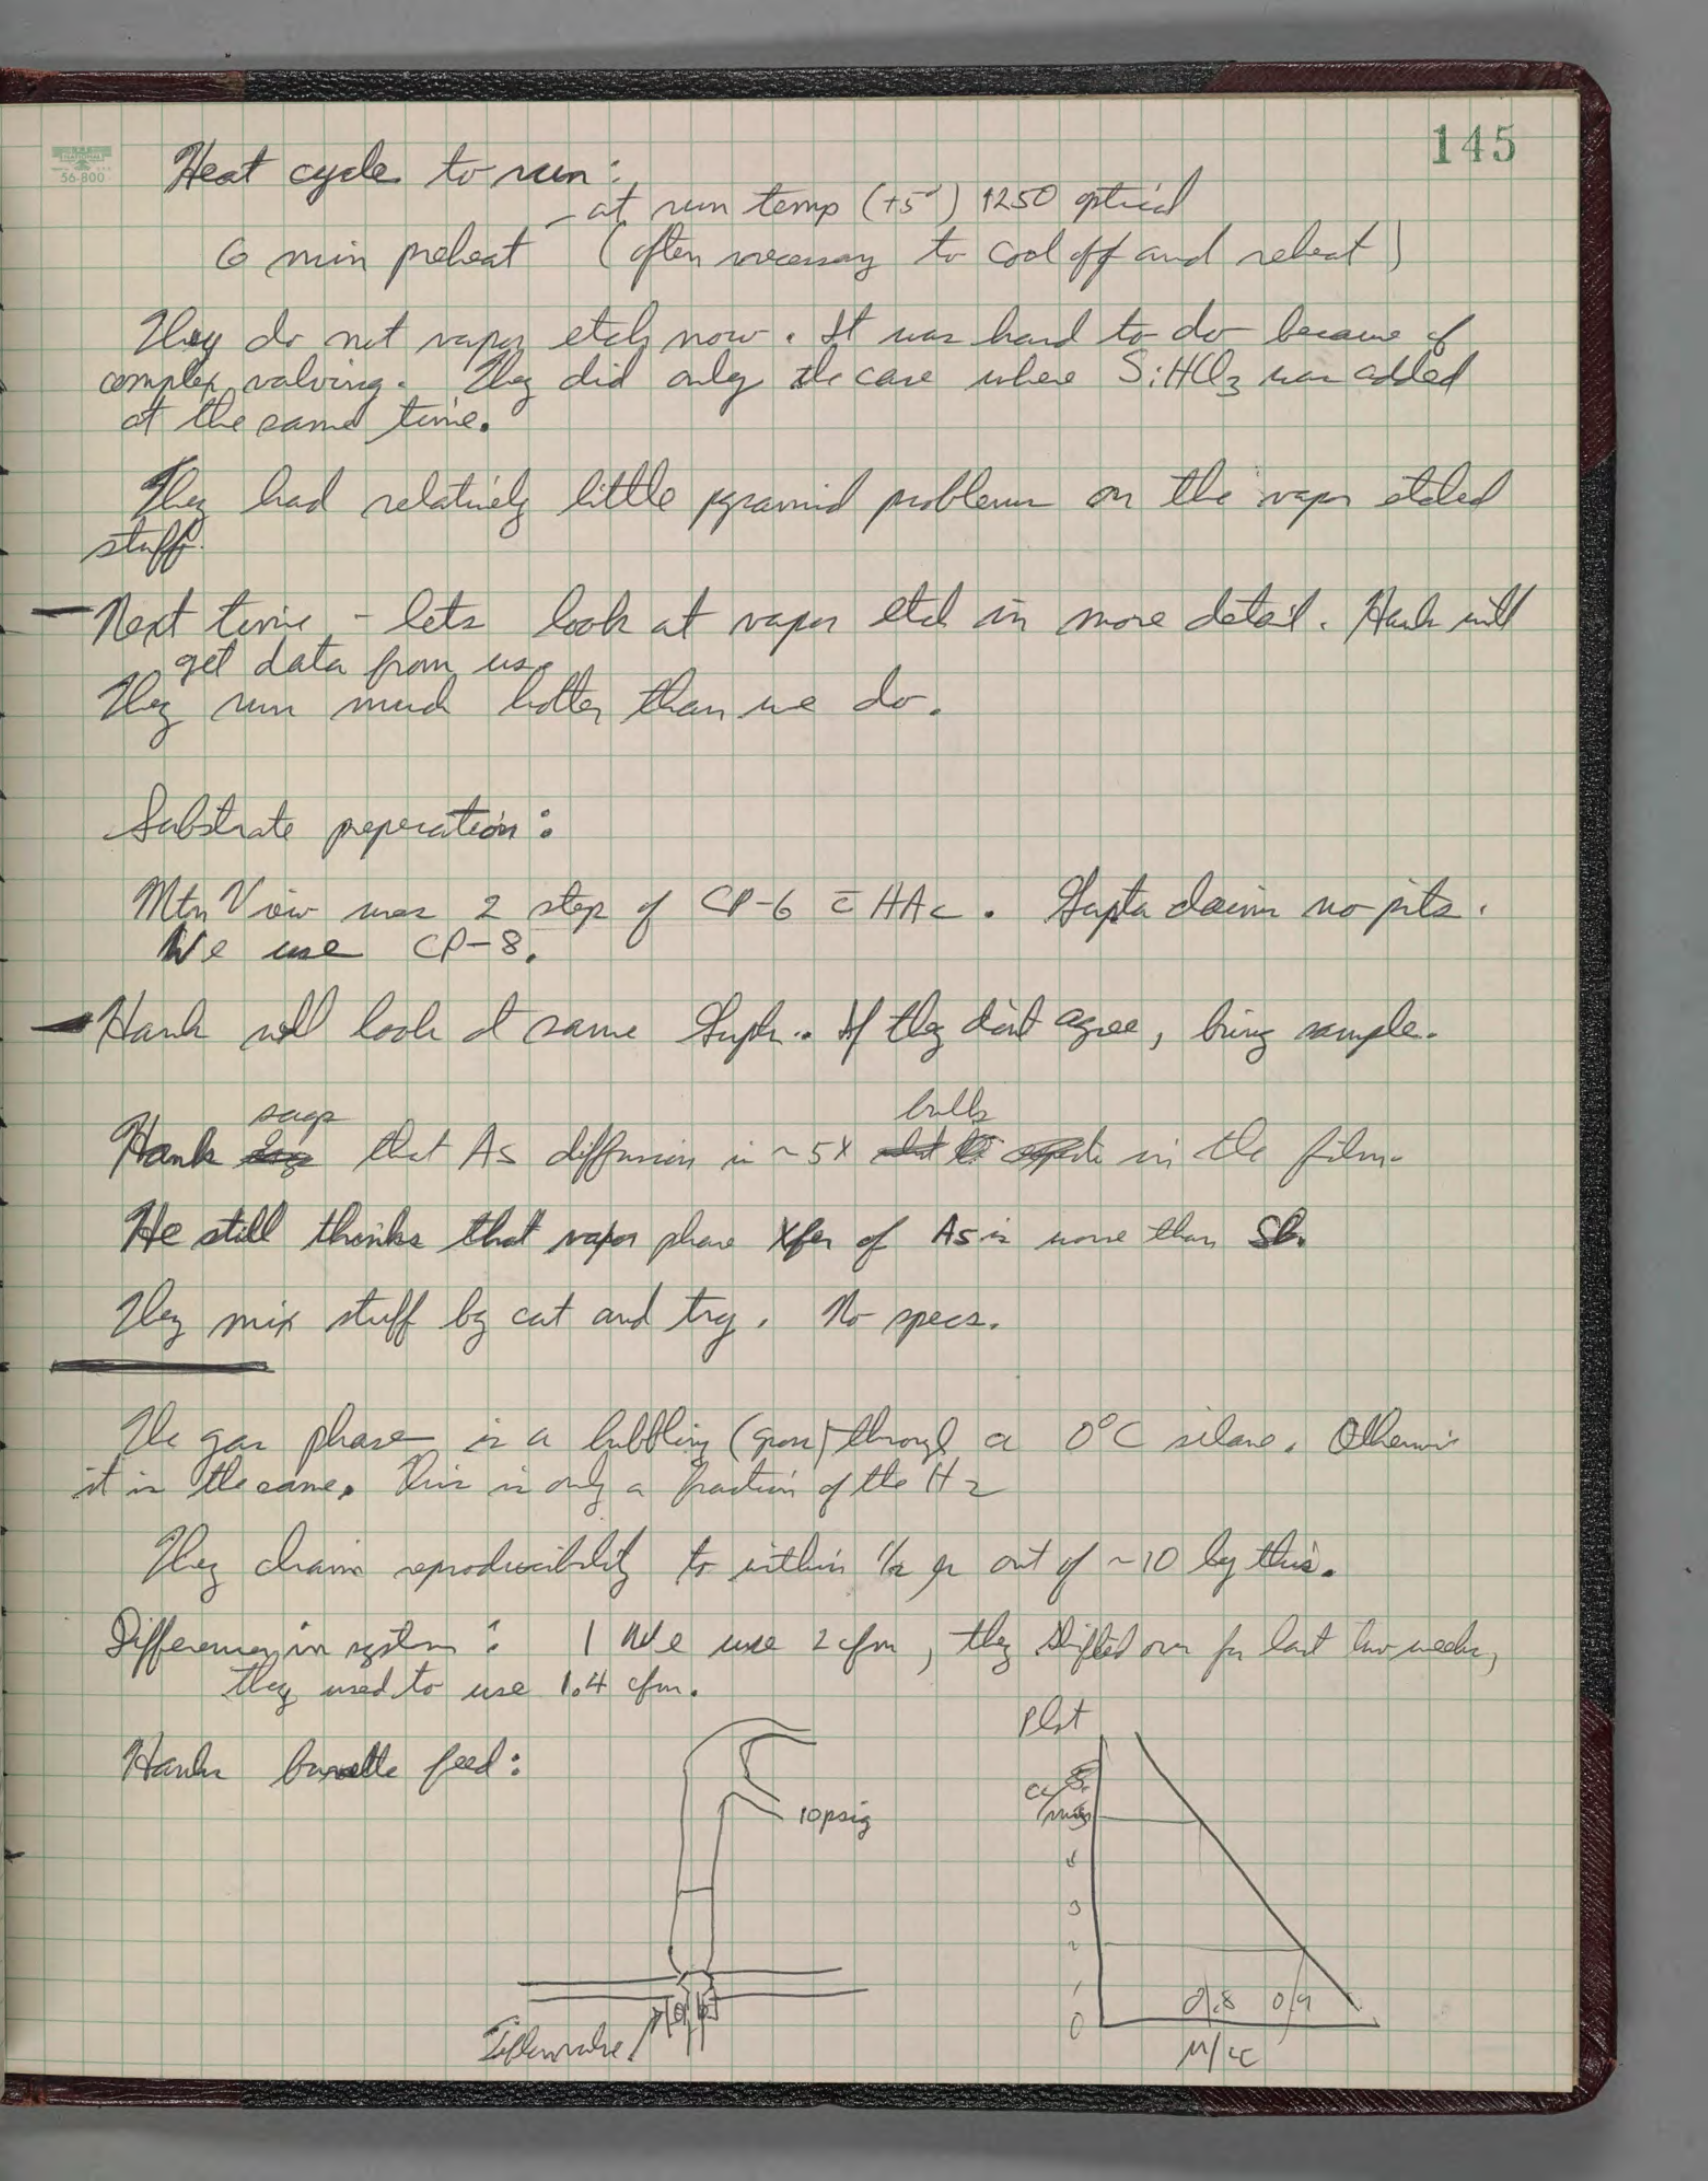 145
56-800
Heat cycle to run:
- at run temp (+5°) 1250 optical
6 min preheat (often necessary to cool off and reheat)
They do not vapor etch now. It was hard to do because of
complex valving. They did only the case where SiHCl3 was added
at the same time.
They had relatively little pyramid problems on the vapor etched
stuff.
- Next time - lets look at vapor etch in more detail. Hank will
get data from us.
They run much hotter than we do.
Substrate preperation:
Mtn View uses 2 step of CP-6 c̄ HAc. Gupta claims no pits.
We use CP-8.
- Hank will look at same If they don't agree, bring sample.
says bulk
Hank that As diffusion is ~5X in the film.
He still thinks that vapor phase Xfer of As is more than Sb.
They mix stuff by cut and try. No specs.
The gas phase is a bubbling through a 0°C silane. Otherwise
it is the same. This is only a fraction of the H2
They claim reproducibility to within 1/2 μ out of ~10 by this.
Differences in system: 1 We use 2 cfm, they shifted over for last two weeks,
they used to use 1.4 cfm.
Hanks burette feed:
10 psig
Teflon valve
Plot
cc/min
5
4
3
2
1
0
0.8 0.9
μ/cc